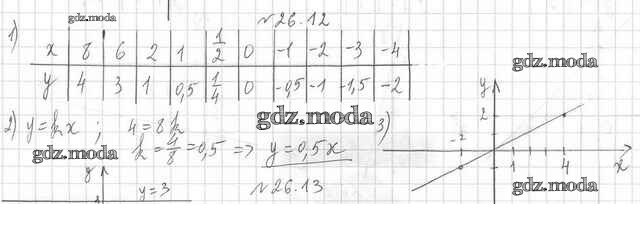 gdz.moda
№26.12
1)
x 8 6 2 1 1/2 0 -1 -2 -3 -4
y 4 3 1 0,5 1/4 0 -0,5 -1 -1,5 -2
gdz.moda
gdz.moda
2) y = kx ; 4 = 8k
k = 4/8 = 0,5 => y = 0,5x
gdz.moda
3)
y
2
-2
1 4 x
gdz.moda
y
y = 3
№26.13